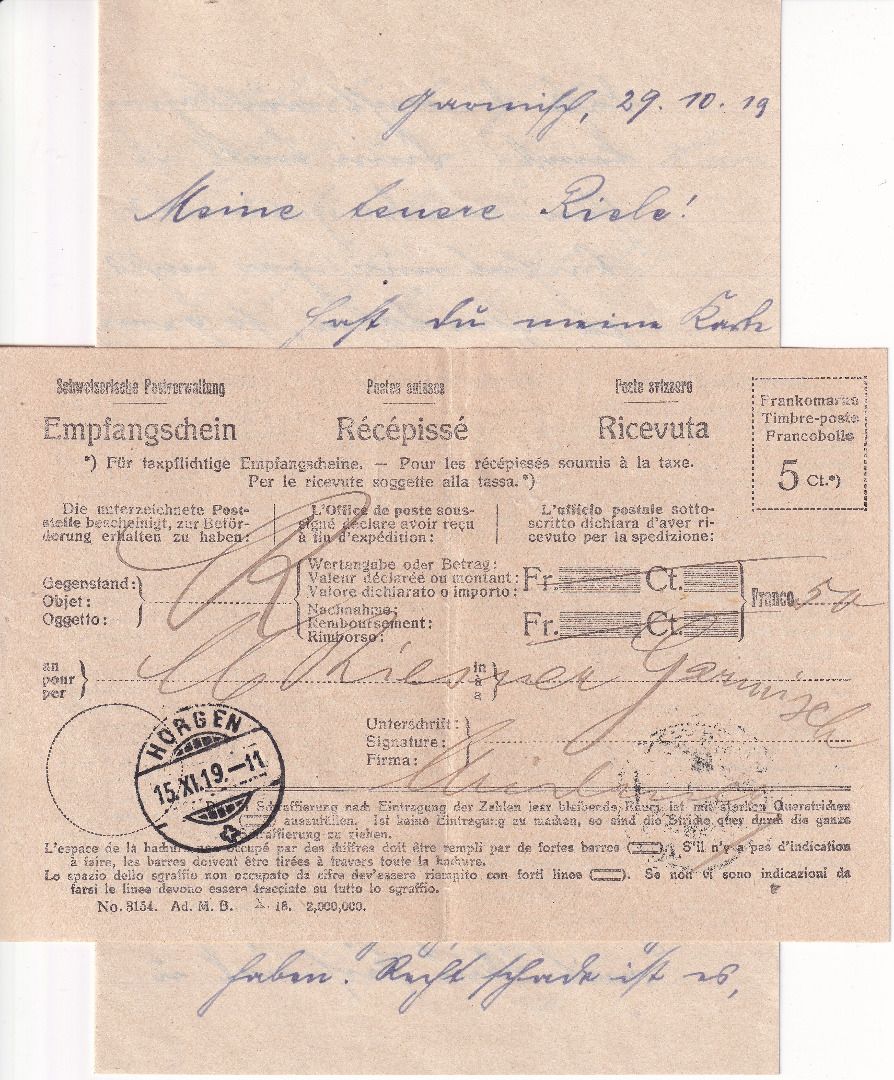 Garmisch, 29. 10. 19
Meine teuere Riele!
hast du meine Karte
Schweizerische Postverwaltung
Postes suisses
Poste svizzere
Empfangschein
Récépissé
Ricevuta
Frankomarke
Timbre-poste
Francobollo
5 Ct.*)
*) Für taxpflichtige Empfangscheine. — Pour les récépissés soumis à la taxe.
Per le ricevute soggette alla tassa.*)
Die unterzeichnete Post-
stelle bescheinigt, zur Beför-
derung erhalten zu haben:
L'Office de poste sous-
signé déclare avoir reçu
à fin d'expédition:
L'ufficio postale sotto-
scritto dichiara d'aver ri-
cevuto per la spedizione:
Gegenstand:
Objet:
Oggetto:
R
Wertangabe oder Betrag:
Valeur déclarée ou montant:
Valore dichiarato o importo:
Fr. Ct.
Nachnahme:
Remboursement:
Rimborso:
Fr. Ct.
Franco 50
an
pour
per
in
à
a
Garmisch
Unterschrift:
Signature:
Firma:
HORGEN
15.XI.19.–11
Schraffierung nach Eintragung der Zahlen leer bleibende Raum ist mit starken Querstrichen
auszufüllen. Ist keine Eintragung zu machen, so sind die Striche quer durch die ganze
Schraffierung zu ziehen.
L'espace de la hachure non occupé par des chiffres doit être rempli par de fortes barres. S'il n'y a pas d'indication
à faire, les barres doivent être tirées à travers toute la hachure.
Lo spazio dello sgraffio non occupato da cifre dev'essere riempito con forti linee. Se non vi sono indicazioni da
farsi le linee devono essere tracciate su tutto lo sgraffio.
No. 3154. Ad. M. B. X. 18. 2,000,000.
haben. Recht schade ist es,